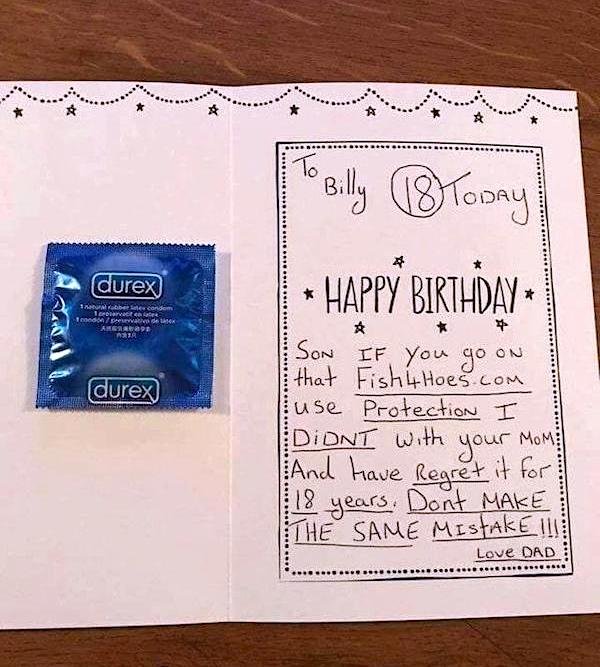 durex
1 natural rubber latex condom
1 préservatif en latex
1 condón / preservativo de látex
durex
To
Billy 18 TODAY
HAPPY BIRTHDAY
SON IF You go ON
that Fish4Hoes.com
use Protection I
DiDNT with your MoM
And have Regret it for
18 years. Dont MAKE
THE SAME MistAKE !!!
Love DAD